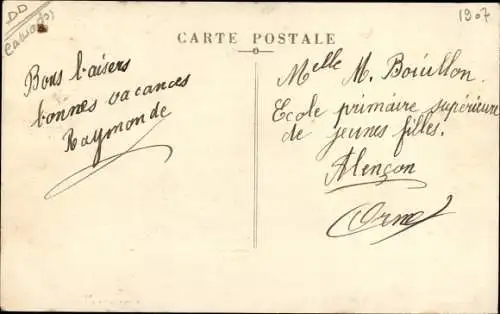 DD
Calvados
1907
CARTE POSTALE
Bons baisers
bonnes vacances
Raymonde
Melle M. Bouillon.
Ecole primaire supérieure
de jeunes filles.
Alençon
Orne